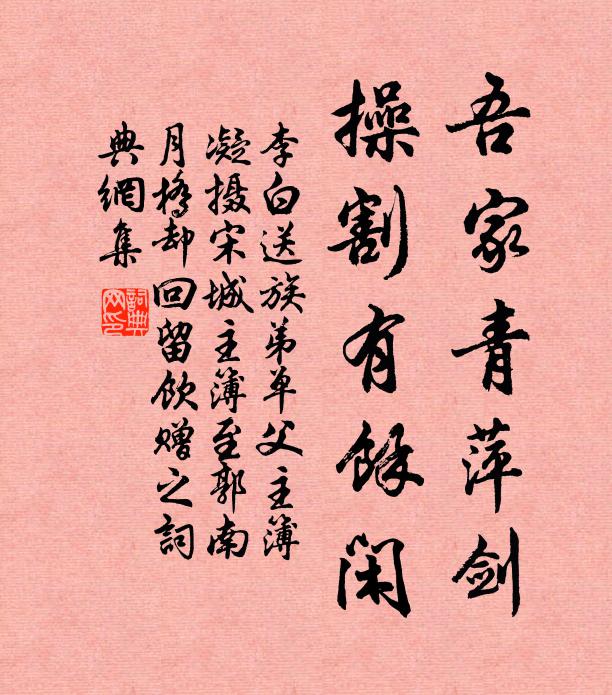 吾家青萍剑
操割有餘閑
李白送族弟单父主簿
凝摄宋城主簿至郭南
月橋却回留饮赠之詞
典網集
詞典
网印